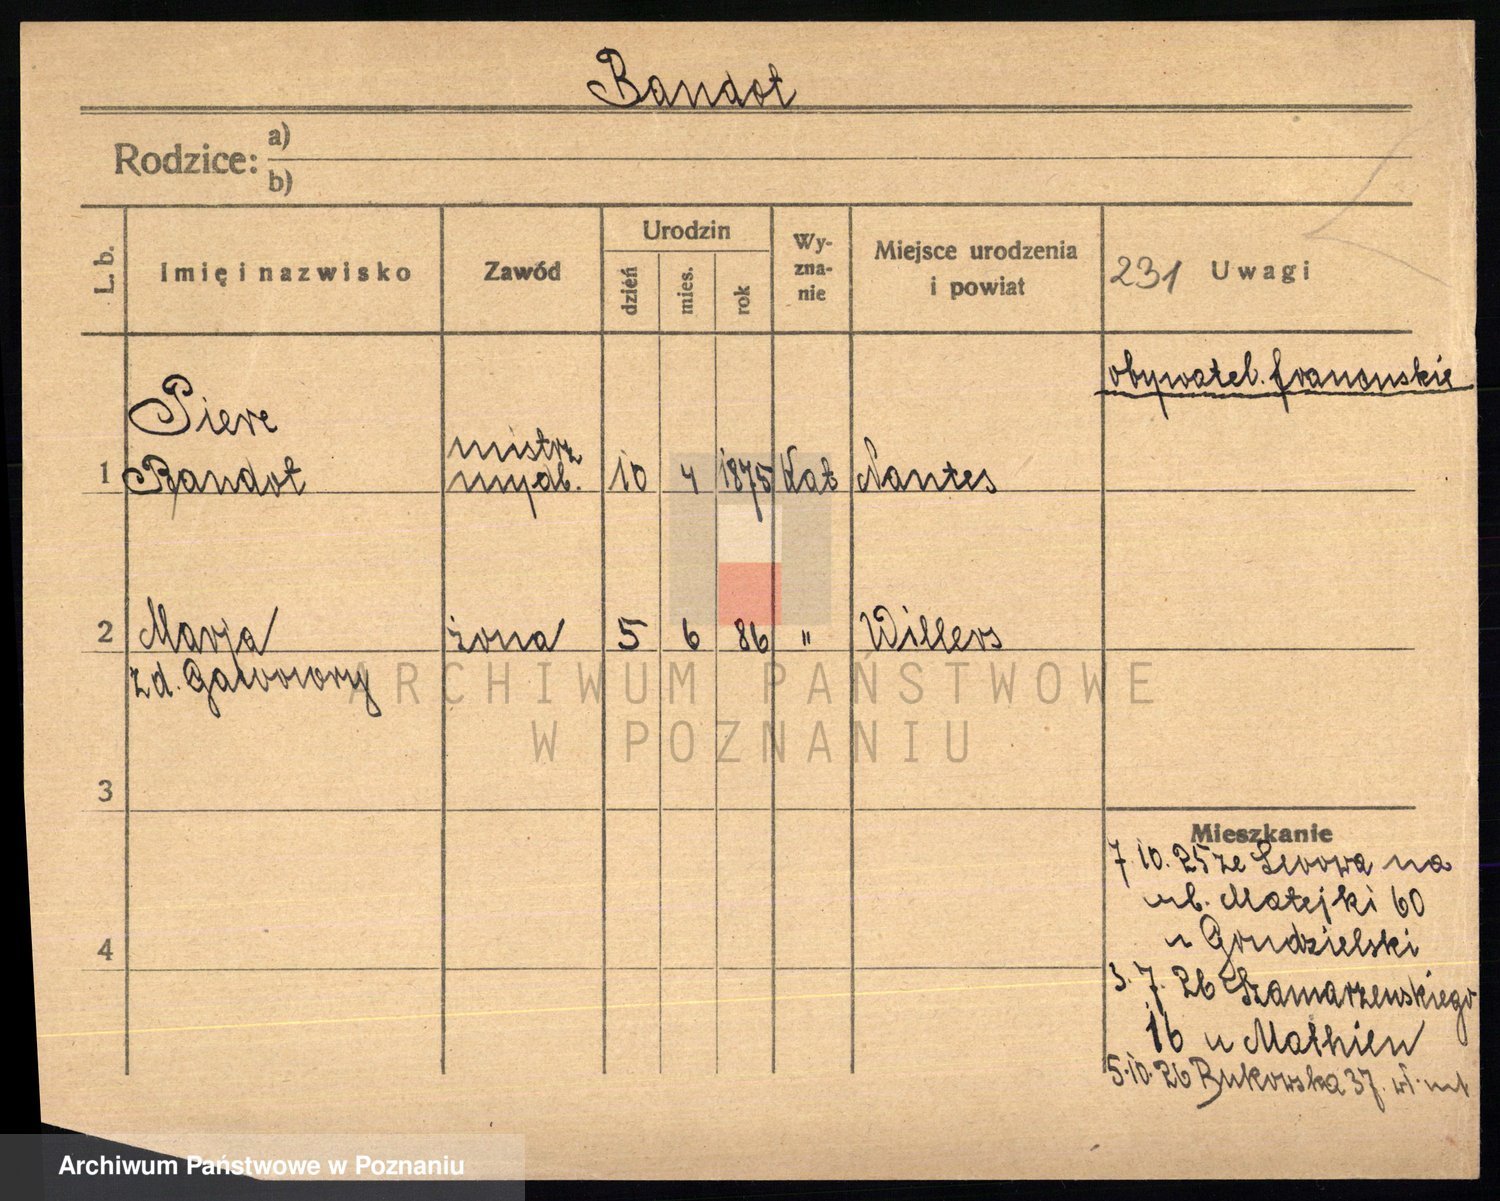 Bandot
Rodzice: a)
b)
L. b.
Imię i nazwisko
Zawód
Urodzin
dzień
mies.
rok
Wy-
zna-
nie
Miejsce urodzenia
i powiat
231 Uwagi
obywatel. francuskie
Piere
mistrz
1 Bandot mydl. 10 4 1875 Kat Nantes
2 Marja żona 5 6 86 " Willers
z d.
3
4
Mieszkanie
7 10. 25 ze Lwowa na
ul. Matejki 60
u Grudzielski
3. 7. 26 Szamarzewskiego
16 u Mathieu
5.10.26 Bukowska 37. wł. mt
ARCHIWUM PAŃSTWOWE
W POZNANIU
Archiwum Państwowe w Poznaniu